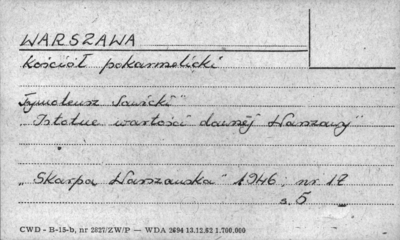 WARSZAWA
Kościół pokarmelicki
Tymoteusz Sawicki"
„Istotne wartości dawnej Warszawy"
„Skarpa Warszawska" 1946, nr 12
s. 5
CWD - B-15-b, nr 2827/ZW/P — WDA 2694 13.12.82 1.700.000